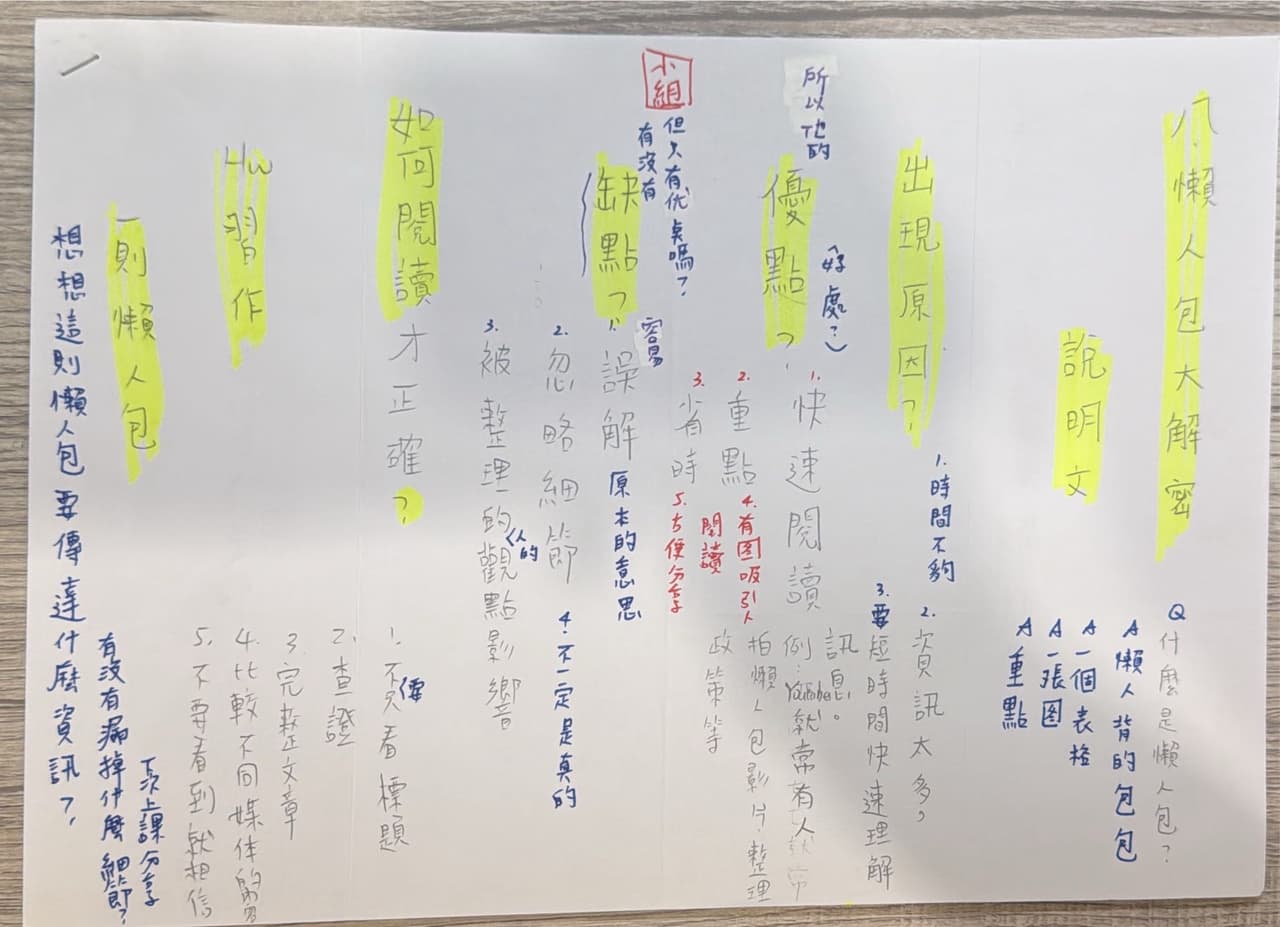 八、懶人包大解密
說明文
Q什麼是懶人包？
A懶人背的包包
A一個表格
A一張图
A重點
出現原因？
1.時間不夠
2.資訊太多，
3.要短時間快速理解
訊息。
所以他的
優點？
（好處？）
1.快速閱讀
例：Youtube就常有人
2.重點
拍懶人包影片，整理
政策等
3.省時
4.有图吸引人
閱讀
5.方便分享
小組
但只有优点嗎？
有沒有
缺點？
1.容易誤解原本的意思
2.忽略細節
3.被整理的人的觀點影響
4.不一定是真的
如何閱讀才正確？
1.不要只看標題
2.查證
3.完整文章
4.比較不同媒体的
5.不要看到就相信
Hw習作
一則懶人包
下次上課分享
有沒有漏掉什麼細節？
想想這則懶人包要傳達什麼資訊？